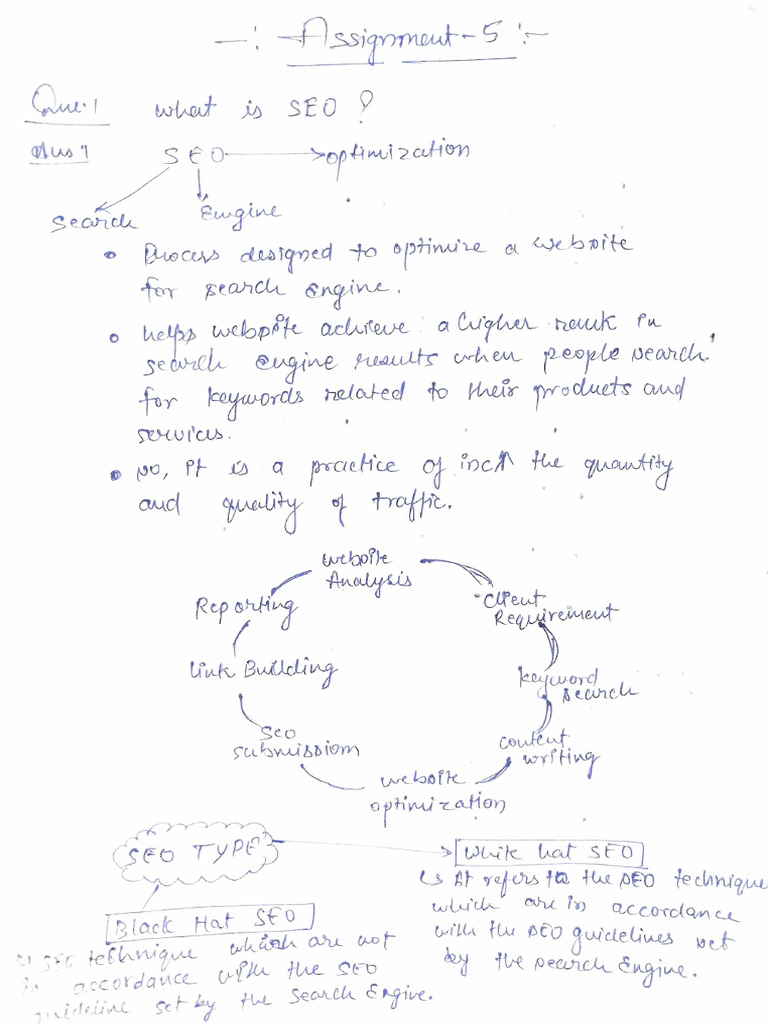 -: Assignment-5 :-
Que.1 What is SEO ?
Ans 1 SEO → optimization
Search Engine
• Process designed to optimize a website
for search engine.
• helps website achieve a higher rank in
search engine results when people search
for keywords related to their products and
services.
• so, it is a practice of inc↑ the quantity
and quality of traffic.
website
Analysis
Client
Requirement
keyword
search
content
writing
website
optimization
seo
submission
link Building
Reporting
SEO TYPE
White hat SEO
↳ It refers to the SEO technique
which are in accordance
with the SEO guidelines set
by the search Engine.
Black Hat SEO
↳ SEO technique which are not
in accordance with the SEO
guideline set by the Search Engine.